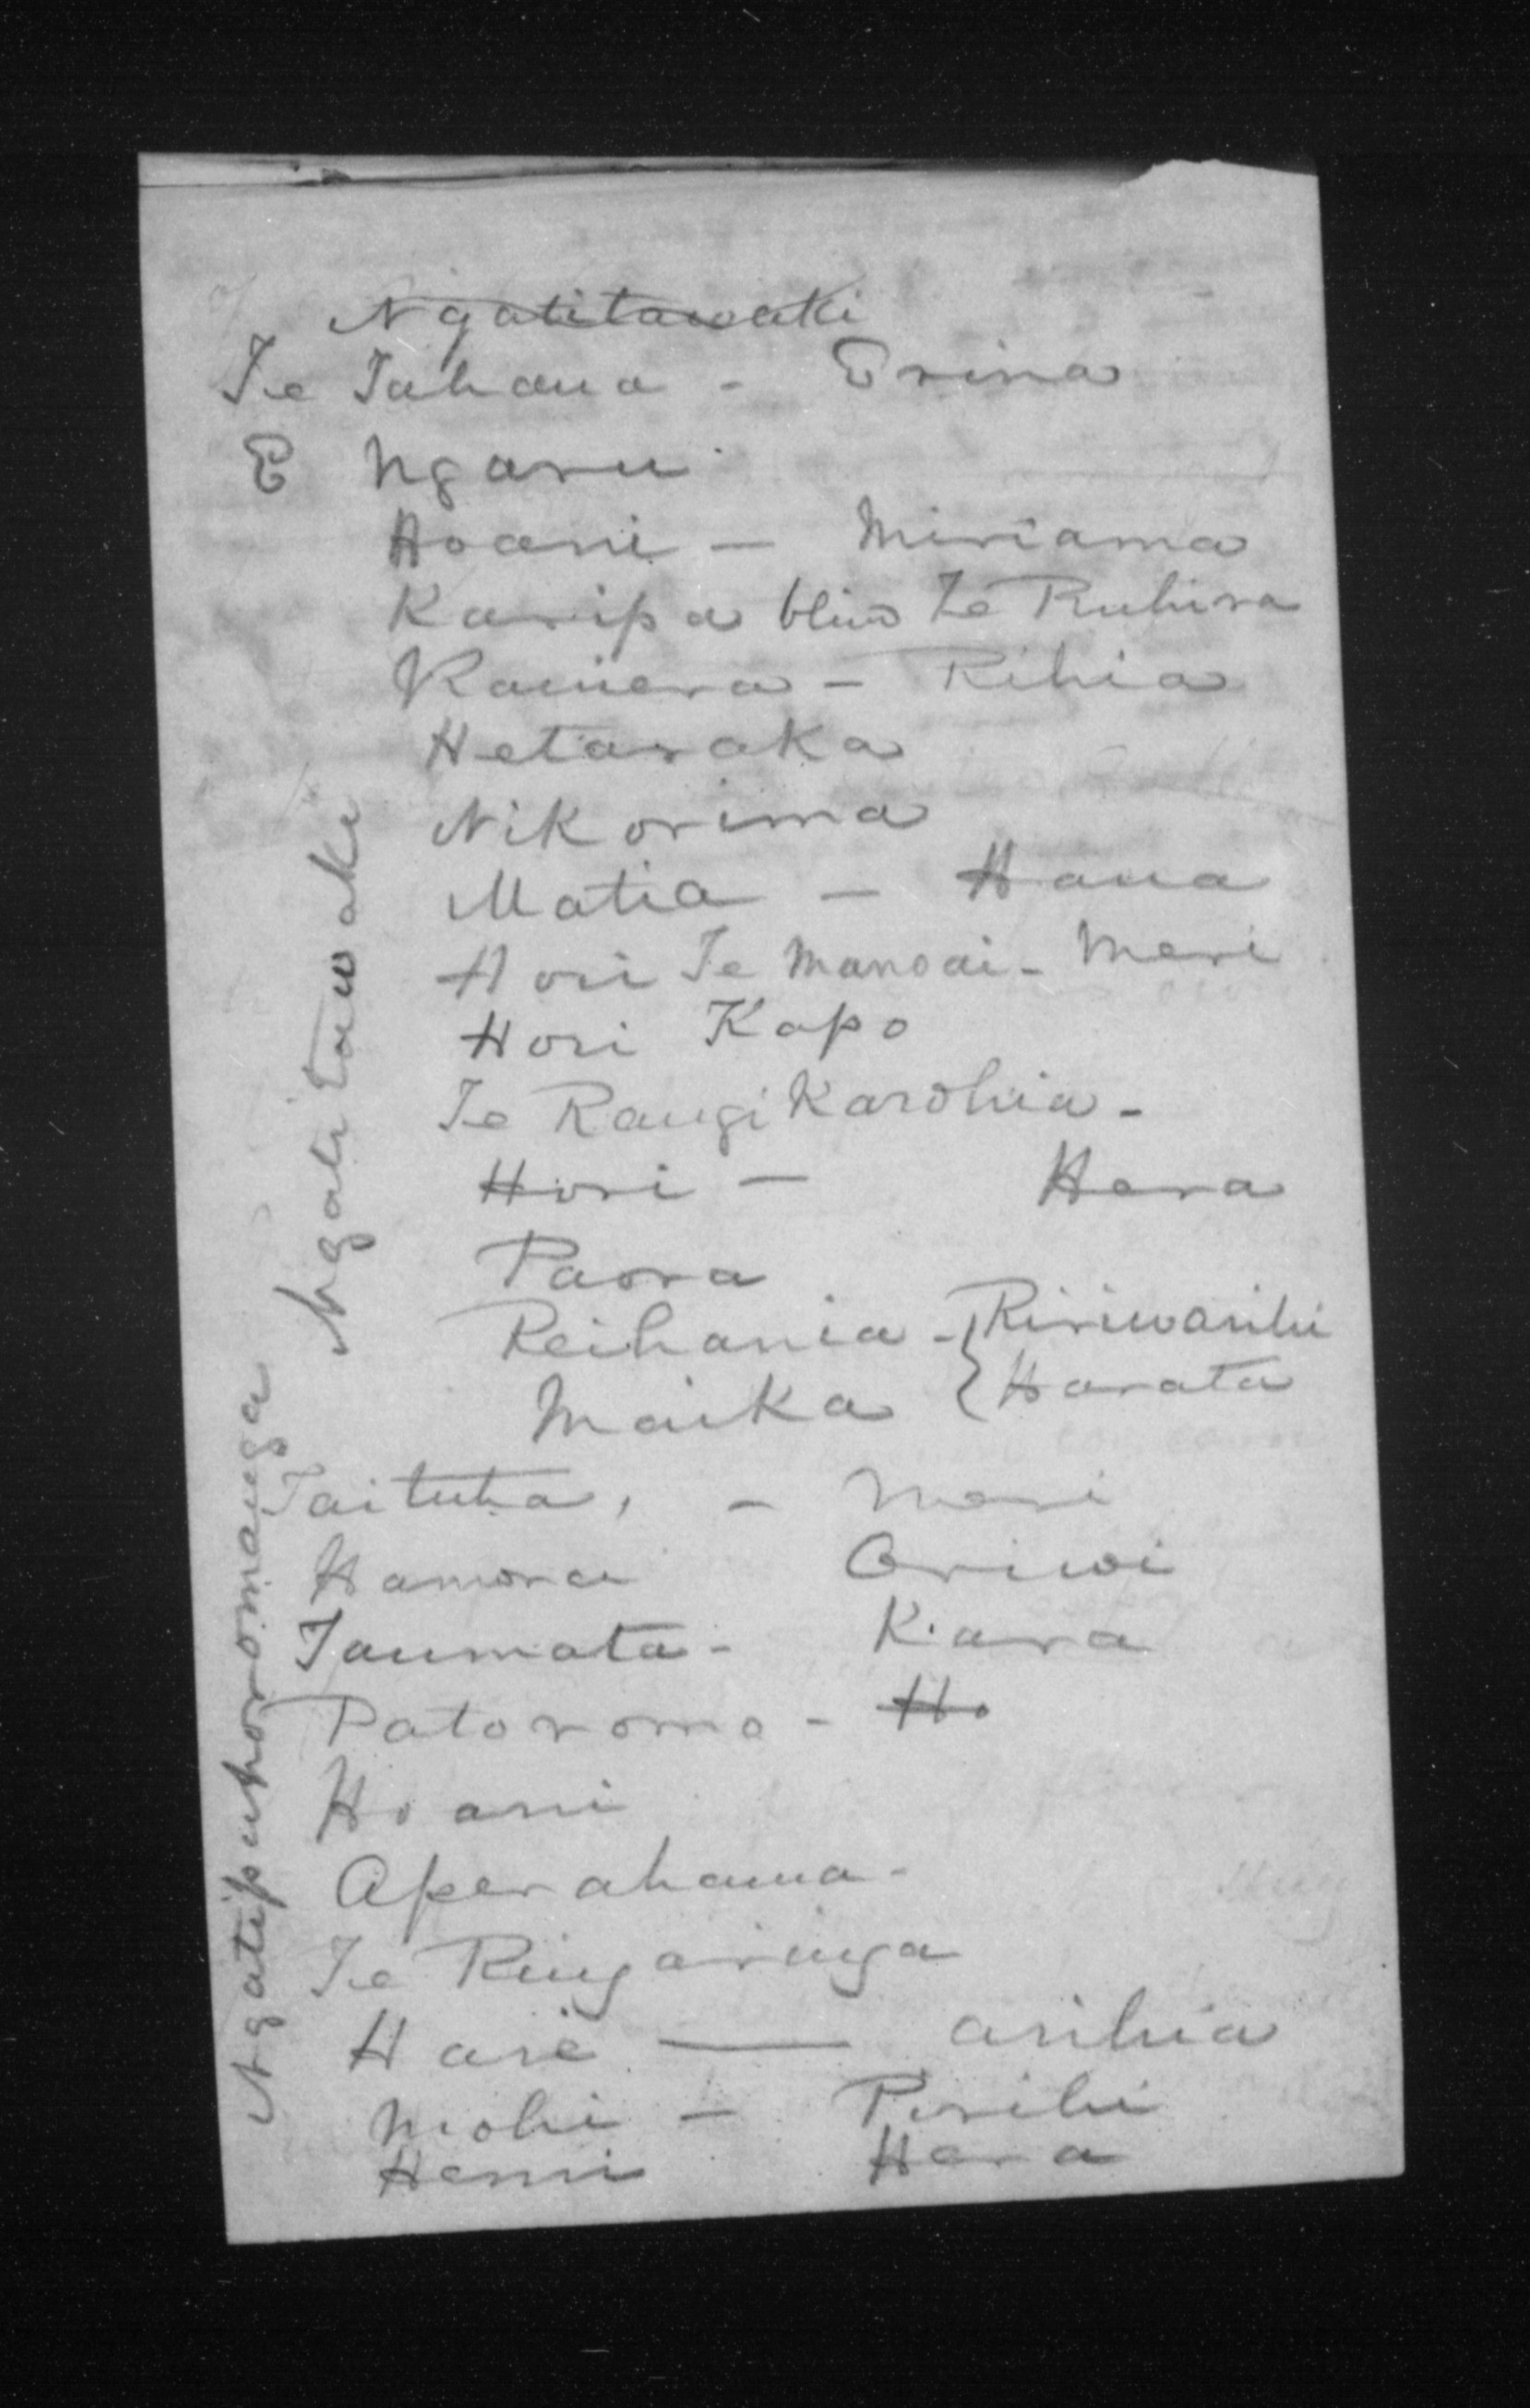 Ngatitawake
Te Tahana - Erina
E Ngaru
Hoani - Miriama
Karipa blind Te Ruhira
Kamera - Rihia
Hetaraka
Nikorima
Matia - Hana
Hori Te Manoai - Meri
Hori Kapo
Te Rangikarohia -
Hori - Hera
Paora
Reihania - Ririwarihi
Maika Harata
Ngatitawake
Taituha, - Meri
Hamora Oriwi
Taumata - Kara
Patoromo - Ho
Hoani
Aperahama -
Te Ringaringa
Hare — Arihia
Mohi - Pirihi
Hemi Hera
Ngatipukoromanga